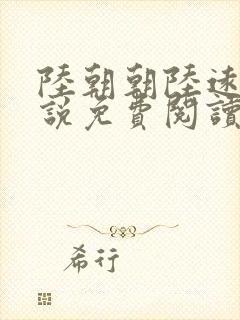 陸朝朝陸遠
說免費閱讀
希行